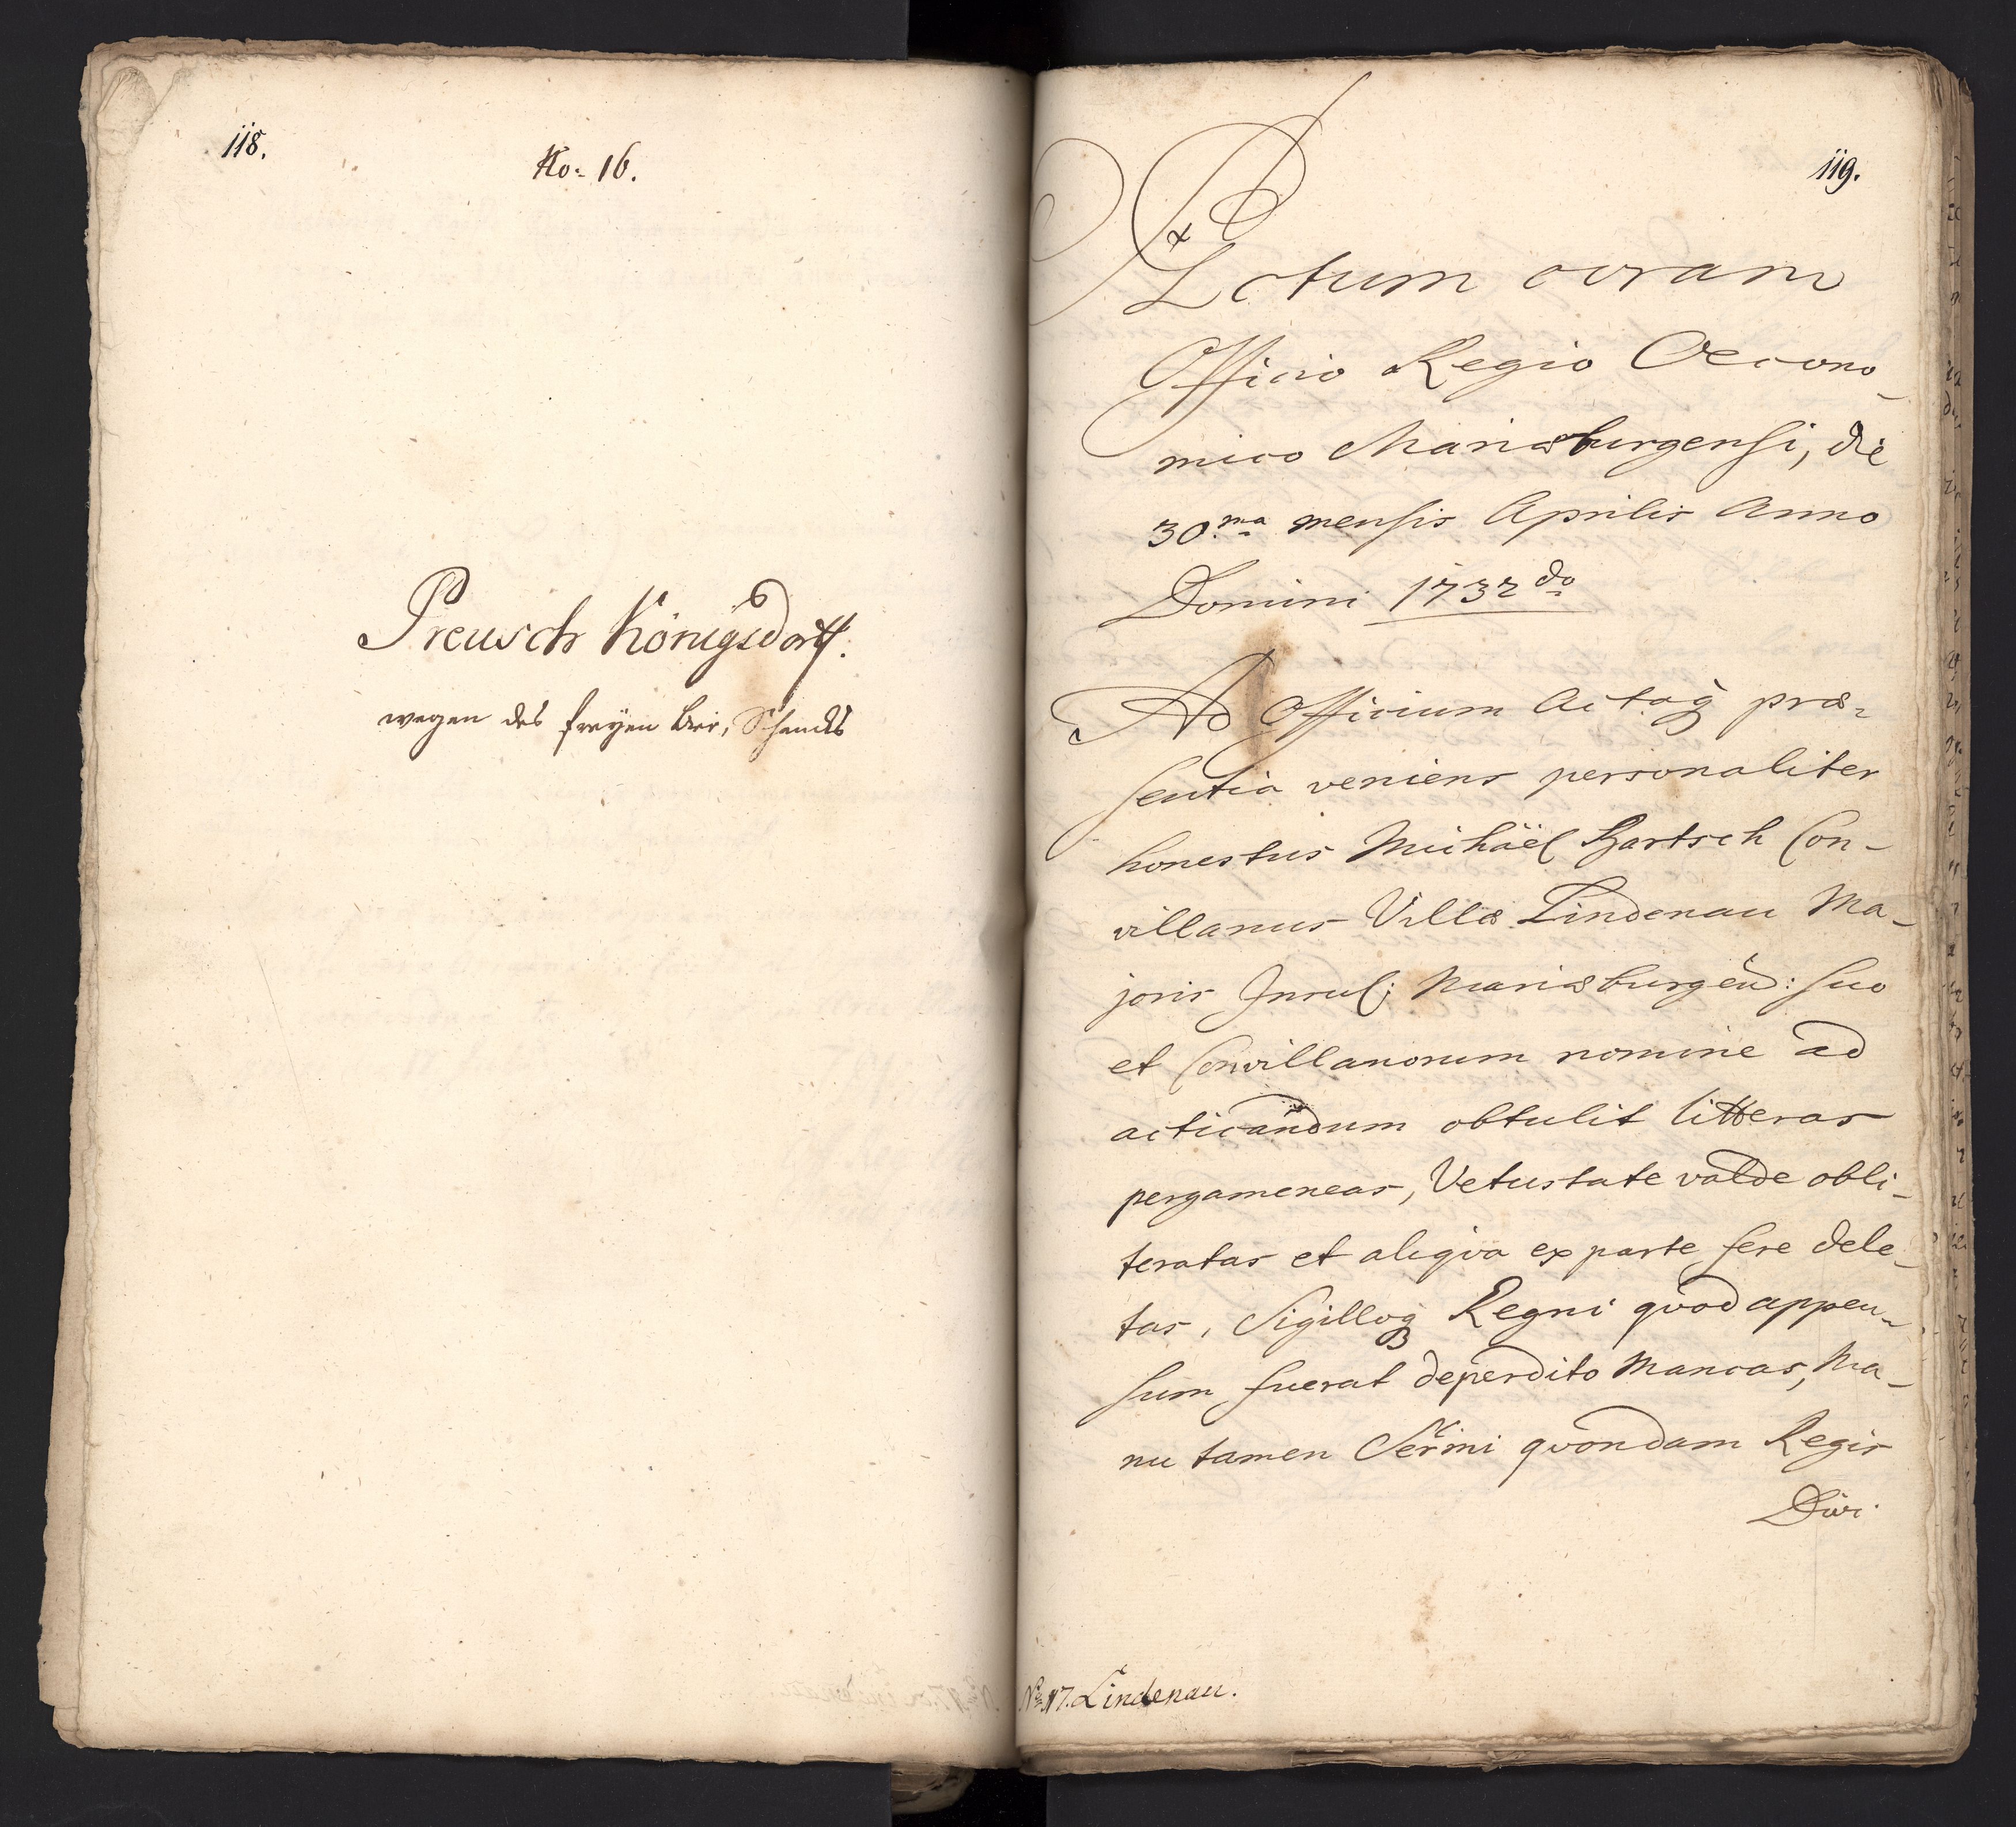 118.
No: 16.
Preusch Königsdorff.
wegen des freyen Bier, Schancks
119.
Actum coram
Officio Regio Oecono-
mico Mariæburgensi, die
30.ma mensis Aprilis Anno
Domini 1732do
Ad Officium Actaq præ-
sentia veniens personaliter
honestus Michäel Bartsch Con-
villanus Villæ Lindenau Ma-
joris Insul: Mariæburgen: suo
et Convillanorum nomine ad
acticandum obtulit litteras
pergameneas, Vetustate valde obli-
teratas et aliqva ex parte fere dele-
tas, Sigilloq Regni qvod appen-
sum fuerat deperdito mancas, Ma-
nu tamen Sermi qvondam Regis
Divi
No 17. Lindenau.